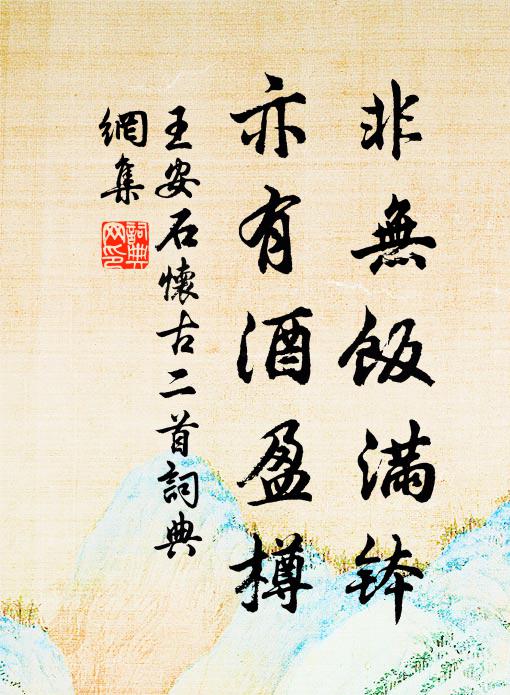 非無飯滿鉢
亦有酒盈樽
王安石懷古二首詞典
網集
詞典網印